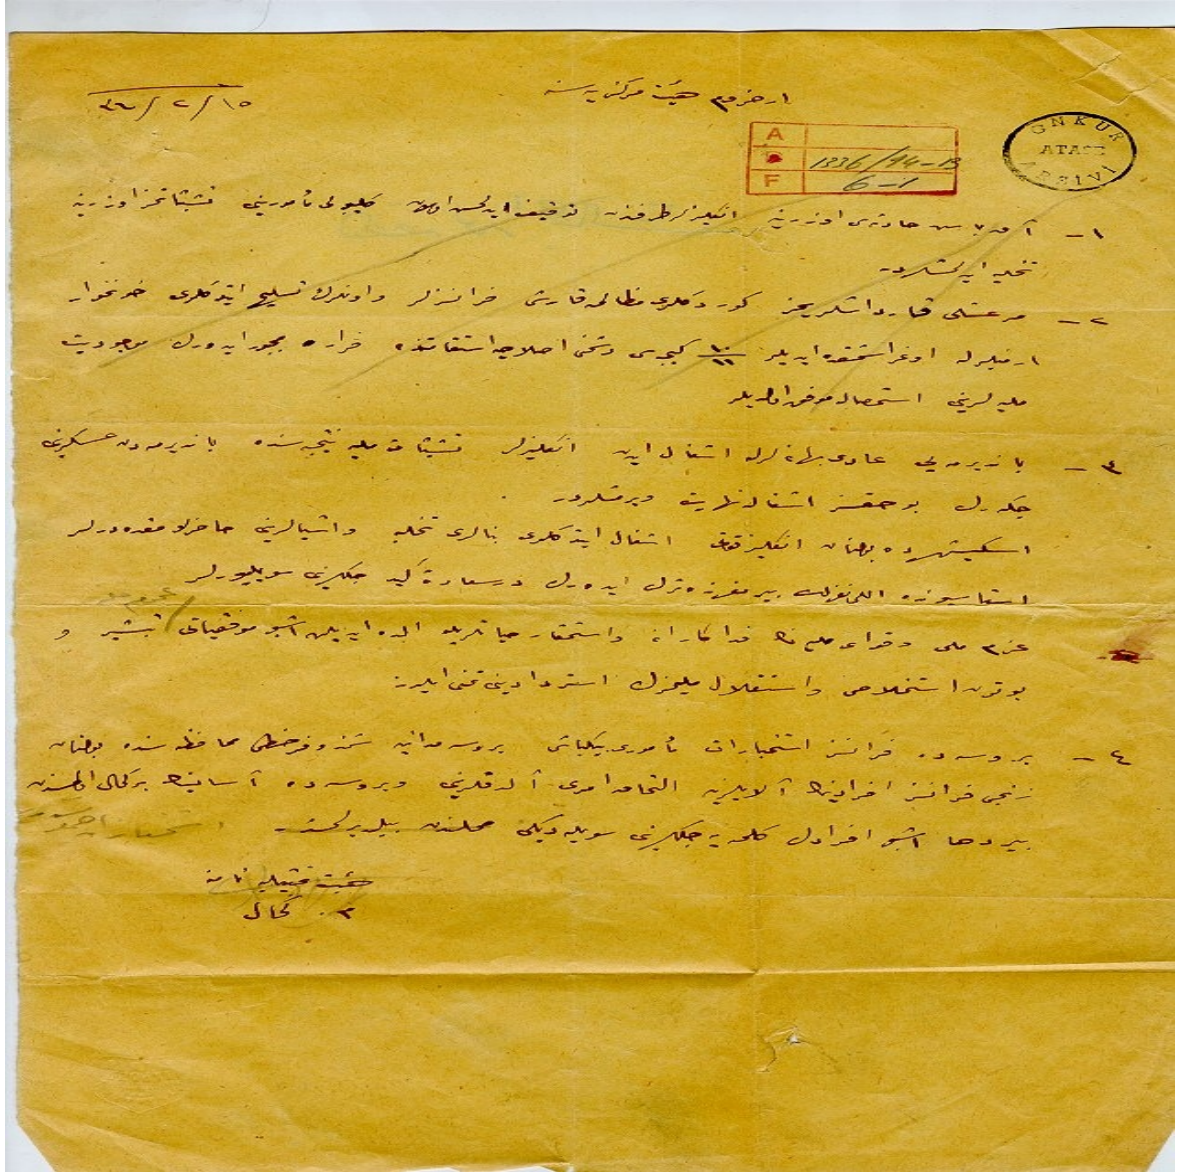 ارضروم هیئت مرکزیه سنه
١٥/٢/٣٦
GNKUR
ATASE
ARŞİVİ
A
1336/94-13
F 6-1
١ـ آقباش حادثه‌سی اوزرینه انگلیزلر طرفندن توقیف ایدیلمش اولان کلیبولی مأمورینی تشبثاتمز اوزرینه
تخلیه ایدلمشلردر
٢ـ مرعشلی قارداشلریمز کوردکلری مظالمه قارشی فرانسزلر و اونلرك تسلیح ایتدکلری خونخوار
ارمنیلرله اوغراشمقده ایدیلر ١٠/١١ کیجه‌سی دشمنی اصلاحیه استقامتنده فراره مجبور ایده‌رك موجودیت
ملیه لرینی استحصاله موفق اولدیلر
٣ـ باندیرمه یی عادی بهانه لرله اشغال ایدن انگلیزلر تشبثات ملیه نتیجه سنده باندیرمه دن عسکرینی
چکه رك بو حقسز اشغاله نهایت ویرمشلردر
اسکیشهرده بولنان انگلیز قوتی اشغال ایتدکلری بنالری تخلیه و اشیالرینی حاضرلامقده درلر
استاسیونده اللی نفرلك بیر مفرزه ترك ایده رك درسعادته کیده جکلرینی سویلیورلر
عزم ملی و قوای ملیه نك فداکارانه و استحقار حیاتلریله الده ایدیلن اشبو موفقیاتی تبشیر و
بوتون استخلاصی و استقلال ملیمزك استردادینی تمنی ایلرز
٤ـ بروسه ده فرانسز استخبارات مأموری بیکباشی بروسه مدانیه شمندوفر خطی محافظه سنده بولنان
زنجی فرانسز افرادینك آلایلرینه التحاق امری آلدقلرینی و بروسه ده آسایشك برکمال اولمسندن
بیر دها اشبو افرادك کلمیه جکلرینی سویله دیکی محلندن بیلدیرلمشدر
هیئت تمثیلیه نامنه
م. کمال